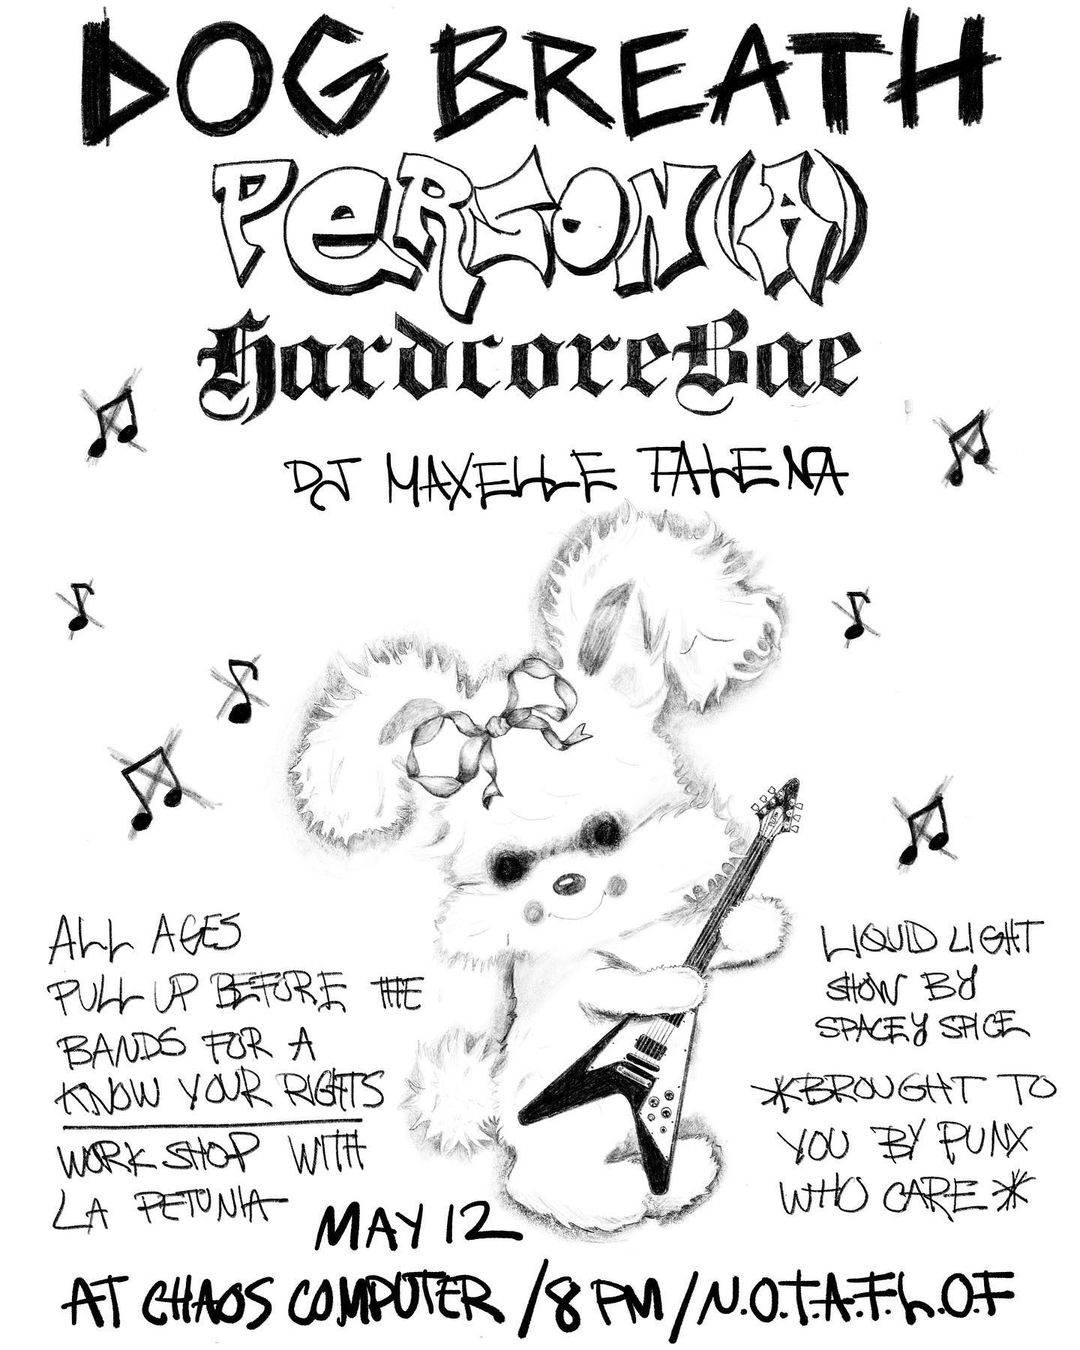 DOG BREATH
PERSON(A)
HardcoreBae
DJ MAXELLE TALENA
ALL AGES
PULL UP BEFORE THE
BANDS FOR A
KNOW YOUR RIGHTS
WORKSHOP WITH
LA PETUNIA
LIQUID LIGHT
SHOW BY
SPACEY SPICE
*BROUGHT TO
YOU BY PUNX
WHO CARE*
MAY 12
AT CHAOS COMPUTER / 8 PM / N.O.T.A.F.L.O.F